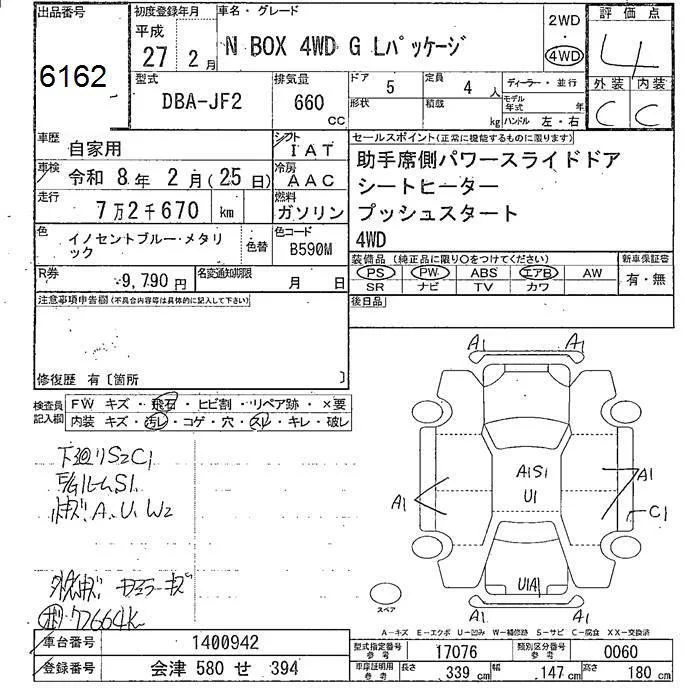 出品番号
6162
初度登録年月
平成
27年 2月
車名・グレード
N BOX 4WD G Lパッケージ
2WD
・
4WD
評価点
4
外装 内装
C C
型式
DBA-JF2
排気量
660 cc
ドア 5
定員 4 人
ディーラー・並行
形状
積載 kg
モデル年式 年
ハンドル 左・右
車歴
自家用
シフト
IAT
車検
令和 8年 2月(25日)
冷房
AAC
走行
7万2千670 km
燃料
ガソリン
色
イノセントブルー・メタリック
色替
色コード
B590M
R券
9,790円
名変通知期限
月 日
セールスポイント(正常に機能するものに限ります)
助手席側パワースライドドア
シートヒーター
プッシュスタート
4WD
装備品(純正品に限り○をつけてください)
PS PW ABS エアB AW
SR ナビ TV カワ
新車保証書
有・無
後日品
注意事項申告欄(不具合内容等は具体的に記入して下さい)
修復歴 有〔箇所 〕
検査員記入欄
FW キズ・飛石・ヒビ割・リペア跡・×要
内装 キズ・汚レ・コゲ・穴・スレ・キレ・破レ
下廻りS2C1
E/GルームS1
小キズ、A、U、W2
外装小キズ
ホ 72664K
A1 A1
A1
A1S1
U1
A1
C1
U1A1
A1 A1
スペア
A-キズ E-エクボ U-凹み W-補修跡 S-サビ C-腐食 XX-交換済
車台番号
1400942
登録番号
会津 580 せ 394
型式指定番号
参考
17076
類別区分番号
参考
0060
車庫証明用
参考
長さ 339 cm
幅 147 cm
高さ 180 cm